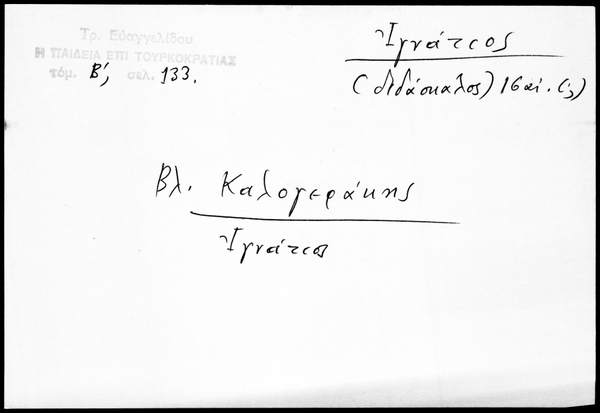 Τρ. Εὐαγγελίδου
Η ΠΑΙΔΕΙΑ ΕΠΙ ΤΟΥΡΚΟΚΡΑΤΙΑΣ
τόμ. Β', σελ. 133.
Ἰγνάτιος
(διδάσκαλος) 16 αἰ. (;)
Βλ. Καλογεράκης
Ἰγνάτιος